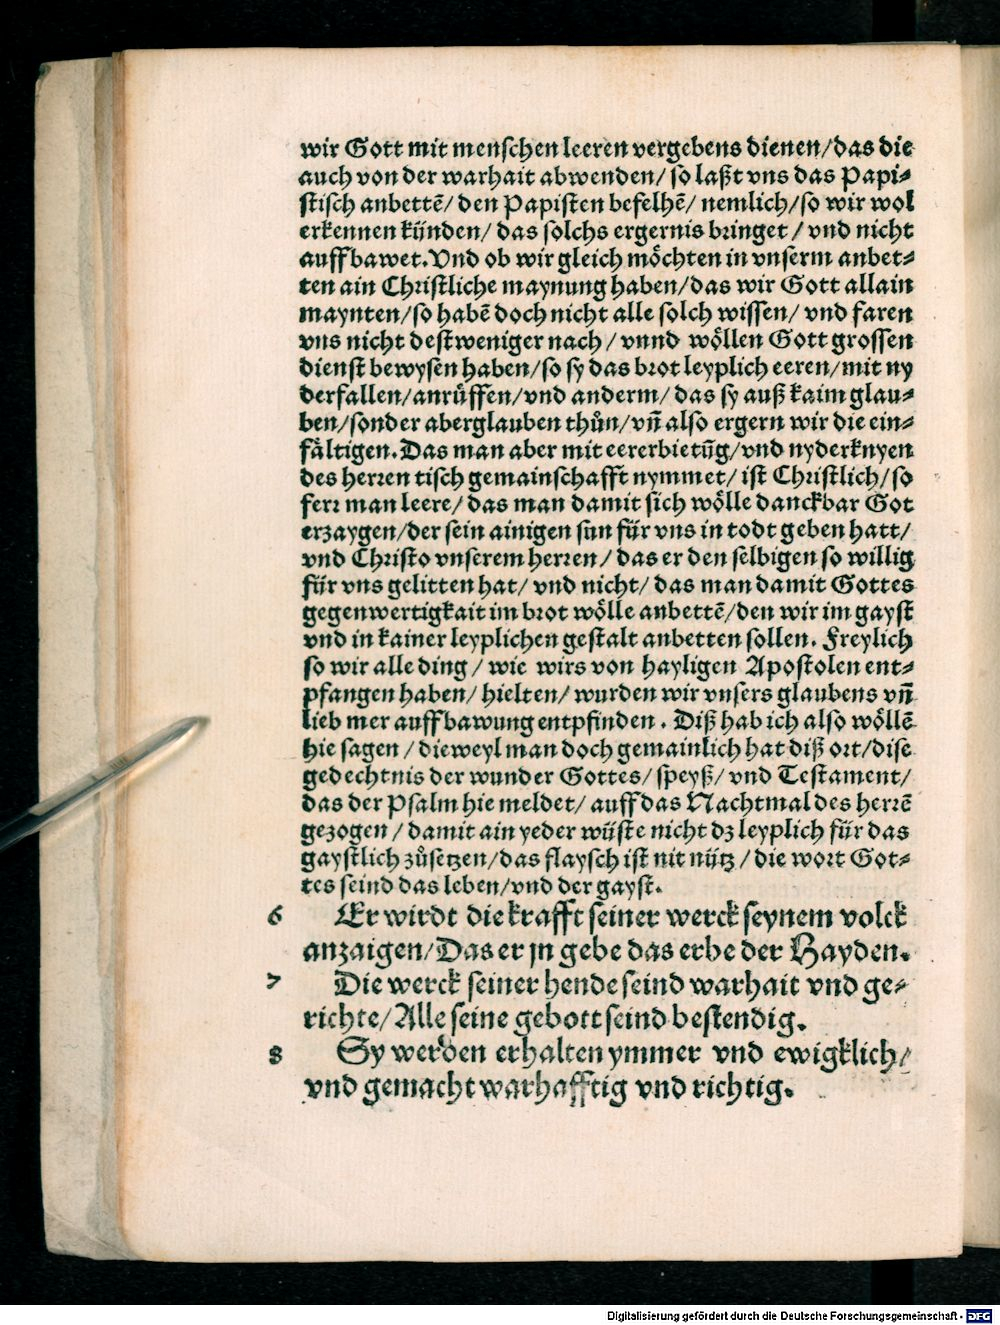 wir Gott mit menschen leeren vergebens dienen/das die
auch von der warhait abwenden/ so laßt vns das Papi-
stisch anbettē/ den Papisten befelhē/ nemlich/so wir wol
erkennen künden/ das solchs ergernis bringet/ vnd nicht
auffbawet. Vnd ob wir gleich möchten in vnserm anbet-
ten ain Christliche maynung haben/das wir Gott allain
maynten/so habē doch nicht alle solch wissen/ vnd faren
vns nicht destweniger nach/ vnnd wöllen Gott grossen
dienst bewysen haben/so sy das brot leyplich eeren/mit ny
derfallen/anrüffen/vnd anderm/ das sy auß kaim glau-
ben/sonder aberglauben thůn/vn̄ also ergern wir die ein-
fältigen. Das man aber mit eererbietūg/vnd nyderknyen
des herren tisch gemainschafft nymmet/ ist Christlich/so
ferr man leere/ das man damit sich wölle danckbar Got
erzaygen/der sein ainigen sun für vns in todt geben hatt/
vnd Christo vnserem herren/ das er den selbigen so willig
für vns gelitten hat/ vnd nicht/ das man damit Gottes
gegenwertigkait im brot wölle anbettē/den wir im gayst
vnd in kainer leyplichen gestalt anbetten sollen. Freylich
so wir alle ding/ wie wirs von hayligen Apostolen ent-
pfangen haben/ hielten/ wurden wir vnsers glaubens vn̄
lieb mer auffbawung entpfinden. Diß hab ich also wöllē
hie sagen/ dieweyl man doch gemainklich hat diß ort/dise
gedechtnis der wunder Gottes/ speyß/ vnd Testament/
das der Psalm hie meldet/ auff das Nachtmal des herrē
gezogen/ damit ain yeder wüste nicht dz leyplich für das
gaystlich zůsetzen/das flaysch ist nit nütz/ die wort Got-
tes seind das leben/vnd der gayst.
6 Er wirdt die krafft seiner werck seynem volck
anzaigen/Das er jn gebe das erbe der Hayden.
7 Die werck seiner hende seind warhait vnd ge-
richte/Alle seine gebott seind bestendig.
8 Sy werden erhalten ymmer vnd ewigklich/
vnd gemacht warhafftig vnd richtig.
Digitalisierung gefördert durch die Deutsche Forschungsgemeinschaft - DFG